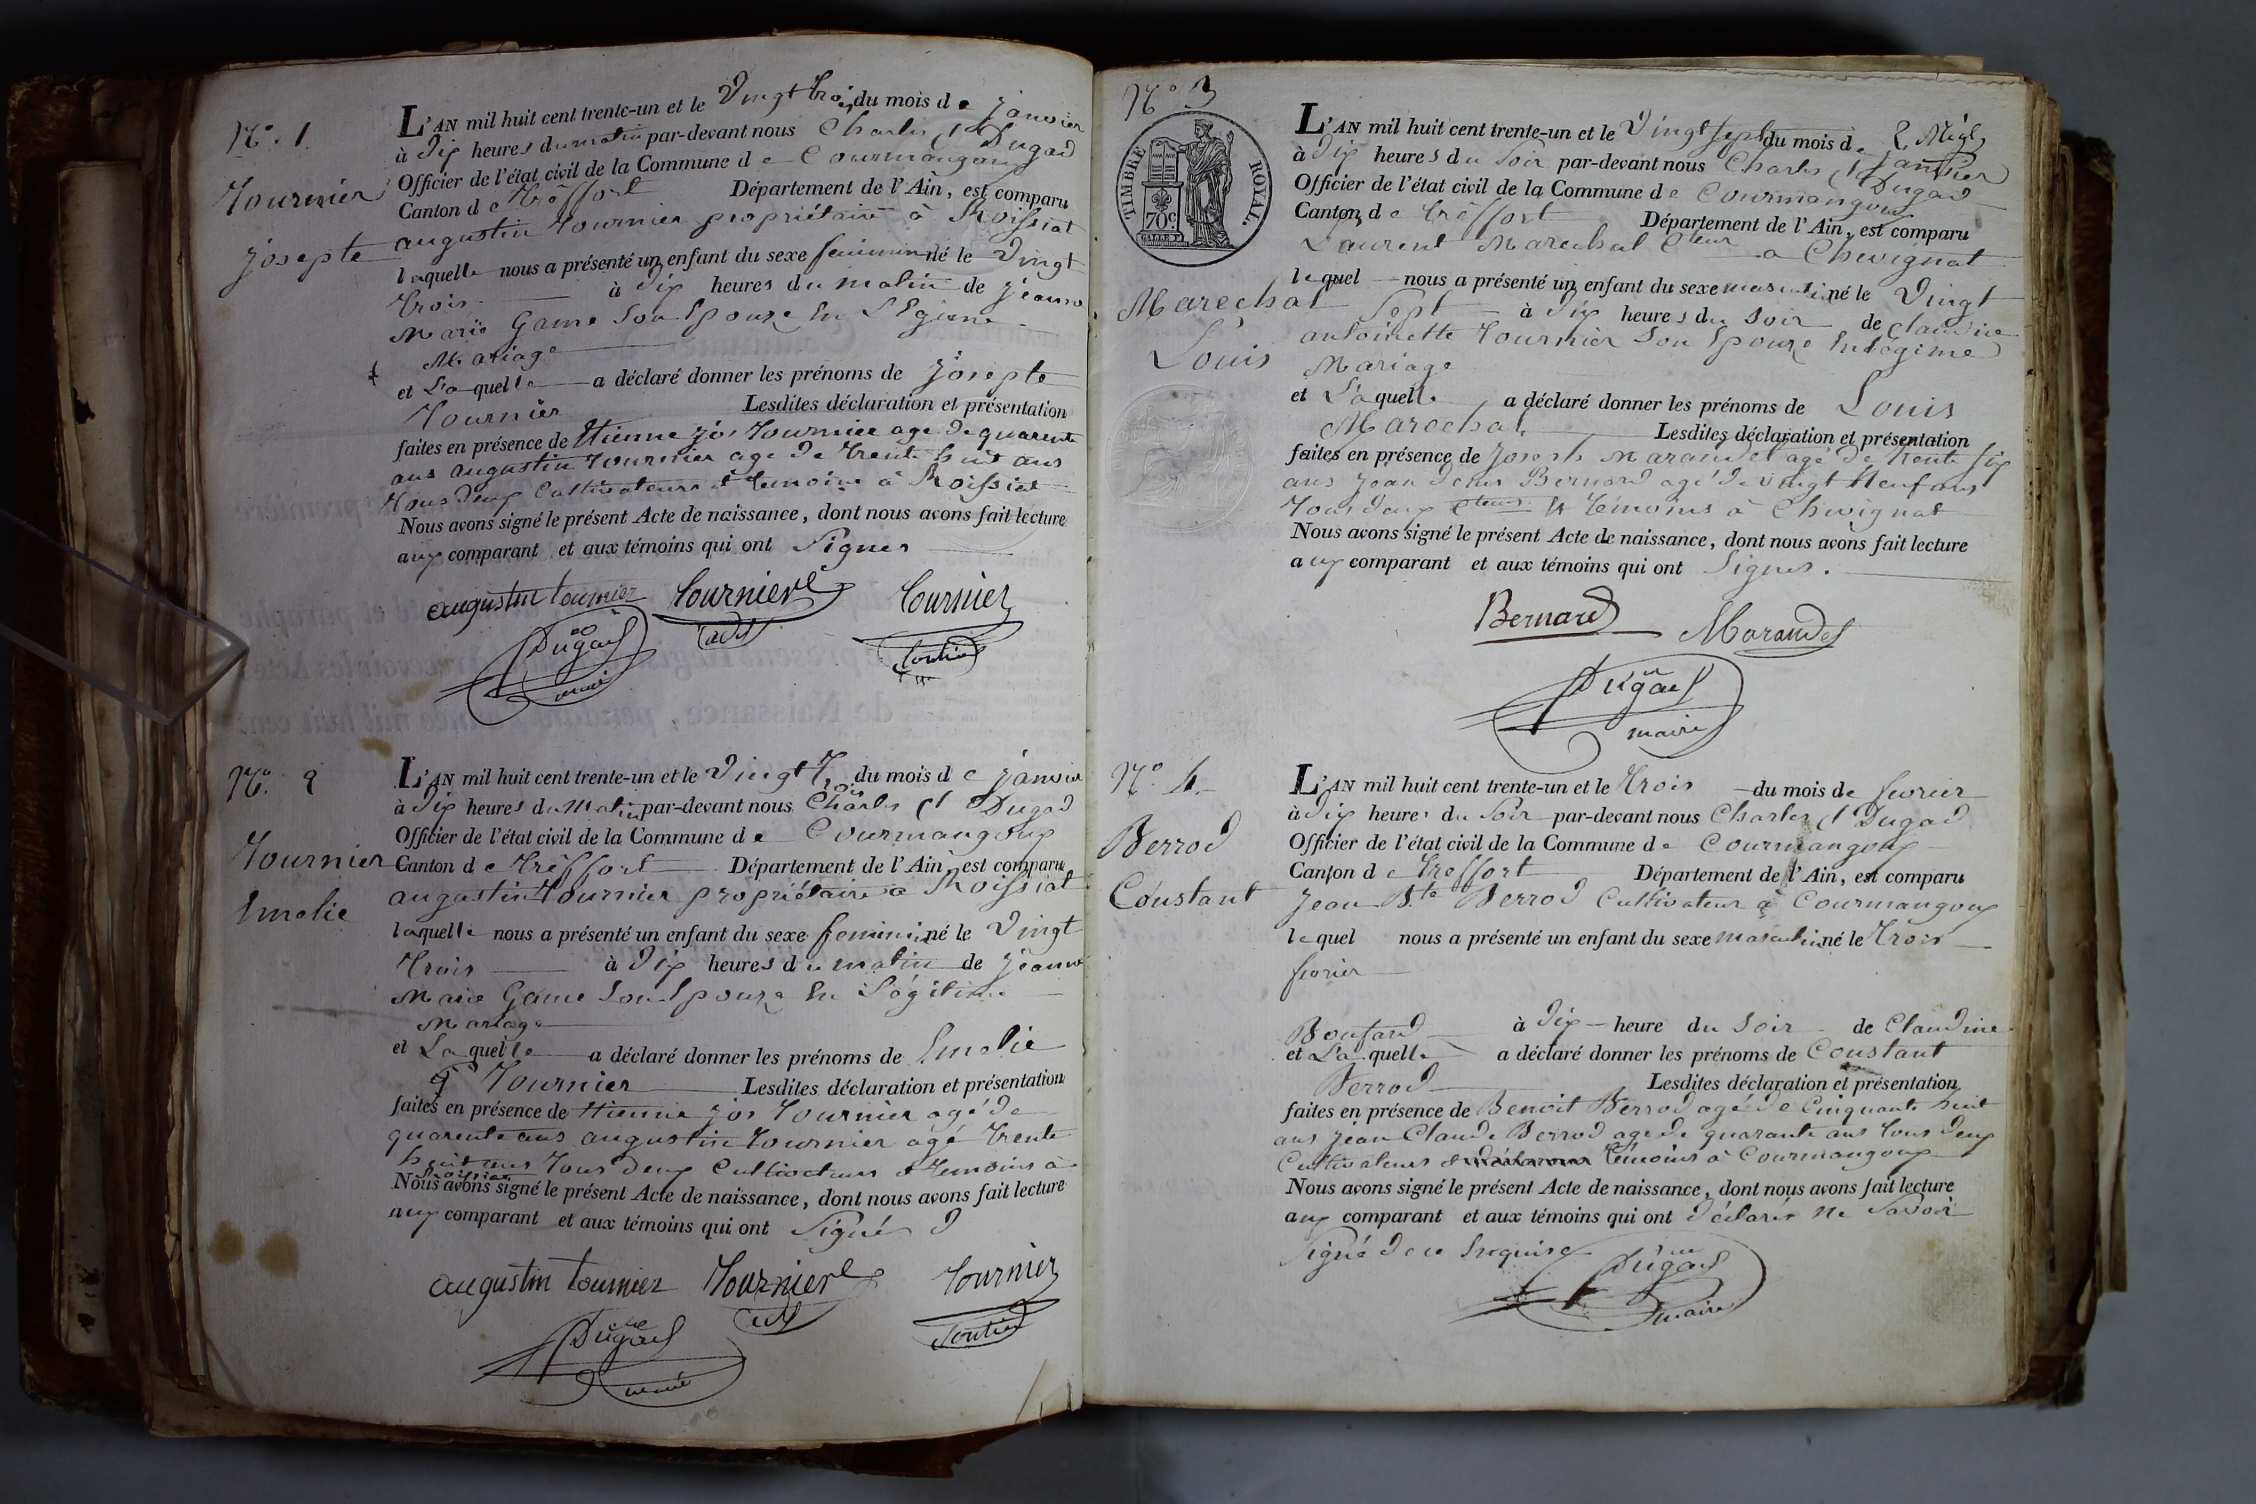 N.° 1.
Tournier
Josepte
L'AN mil huit cent trente-un et le Vingt trois du mois de janvier
à dix heures du matin par-devant nous Charles Dugad
Officier de l'état civil de la Commune de Courmangoux
Canton de Trêffort Département de l'Ain, est comparu
augustin Tournier propriétaire à Roissiat
laquelle nous a présenté un enfant du sexe feminin né le Vingt
trois à dix heures du matin de jeanne
Marie Game Son Epouze En
Mariage
et Laquelle a déclaré donner les prénoms de josepte
Tournier Lesdites déclaration et présentation
faites en présence de Etienne jos Tournier age de quarente
ans augustin Tournier age de trente huit ans
tous deux Cultivateurs et temoins à Roissiat
Nous avons signé le présent Acte de naissance, dont nous avons fait lecture
aux comparant et aux témoins qui ont Signer
augustin tournier Tournier Tournier
Dugad
maire
N.° 2
Tournier
Emelie
L'AN mil huit cent trente-un et le Vingt Trois du mois de janvier
à dix heures du Matin par-devant nous Charles Dugad
Officier de l'état civil de la Commune de Courmangoux
Canton de Trêffort Département de l'Ain, est comparu
augustin Tournier propriétaire a Roissiat
laquelle nous a présenté un enfant du sexe feminin né le Vingt
trois à dix heures du matin de jeanne
Marie Game Son Epouze En Légitime
Mariage
et Laquelle a déclaré donner les prénoms de Emelie
Tournier Lesdites déclaration et présentation
faites en présence de Etienne jos Tournier agé de
quarente ans augustin Tournier agé trente
huit ans tous deux Cultivateurs et temoins à
Roissiat
Nous avons signé le présent Acte de naissance, dont nous avons fait lecture
aux comparant et aux témoins qui ont Signé
augustin tournier Tournier Tournier
Dugad
maire
N.° 3
TIMBRE ROYAL.
70c
Marechal
Louis
L'AN mil huit cent trente-un et le Vingt sept du mois de janvier
à dix heures du Soir par-devant nous Charles Dugad
Officier de l'état civil de la Commune de Courmangoux
Canton de trêffort Département de l'Ain, est comparu
Laurent Marechal Cteur a Chevignat
lequel nous a présenté un enfant du sexe masculin né le Vingt
Sept à dix heures du Soir de claudine
antoinette Tournier Son Epouze En Légime
Mariage
et Laquelle a déclaré donner les prénoms de Louis
Marechal Lesdites déclaration et présentation
faites en présence de Joseph Marandet agé de trente six
ans jean denis Bernard agé de vingt Neuf ans
tous deux Cteurs et témoins à Chevignat
Nous avons signé le présent Acte de naissance, dont nous avons fait lecture
aux comparant et aux témoins qui ont Signer.
Bernard Marandet
Dugad
maire
N.° 4.
Berrod
Constant
L'AN mil huit cent trente-un et le trois du mois de fevrier
à dix heures du Soir par-devant nous Charles Dugad
Officier de l'état civil de la Commune de Courmangoux
Canton de treffort Département de l'Ain, est comparu
jean B.te Berrod Cultivateur a Courmangoux
lequel nous a présenté un enfant du sexe masculin né le trois
fevrier
à dix heure du Soir de Claudine
Boufard
et Laquelle a déclaré donner les prénoms de Constant
Berrod Lesdites déclaration et présentation
faites en présence de Benoit Berrod agé de Cinquante huit
ans jean Claude Berrod age de quarante ans tous deux
Cultivateurs et témoins à Courmangoux
Nous avons signé le présent Acte de naissance, dont nous avons fait lecture
aux comparant et aux témoins qui ont déclarer ne Savoir
Signé de ce Enquise
Dugad
maire